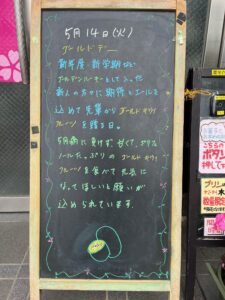 5月14日(火)
ゴールドデー
新年度・新学期など
ゴールデンルーキーとして入った
新人の方々に期待とエールを
込めて先輩からゴールドキウイ
フルーツを贈る日。
5月病に負けず、甘くて、ビタミ
ンCたっぷりのゴールドキウイ
フルーツを食べて元気に
なってほしいと願いが
込められています。
こちらの
ボタン
押して
プリン
数量限定